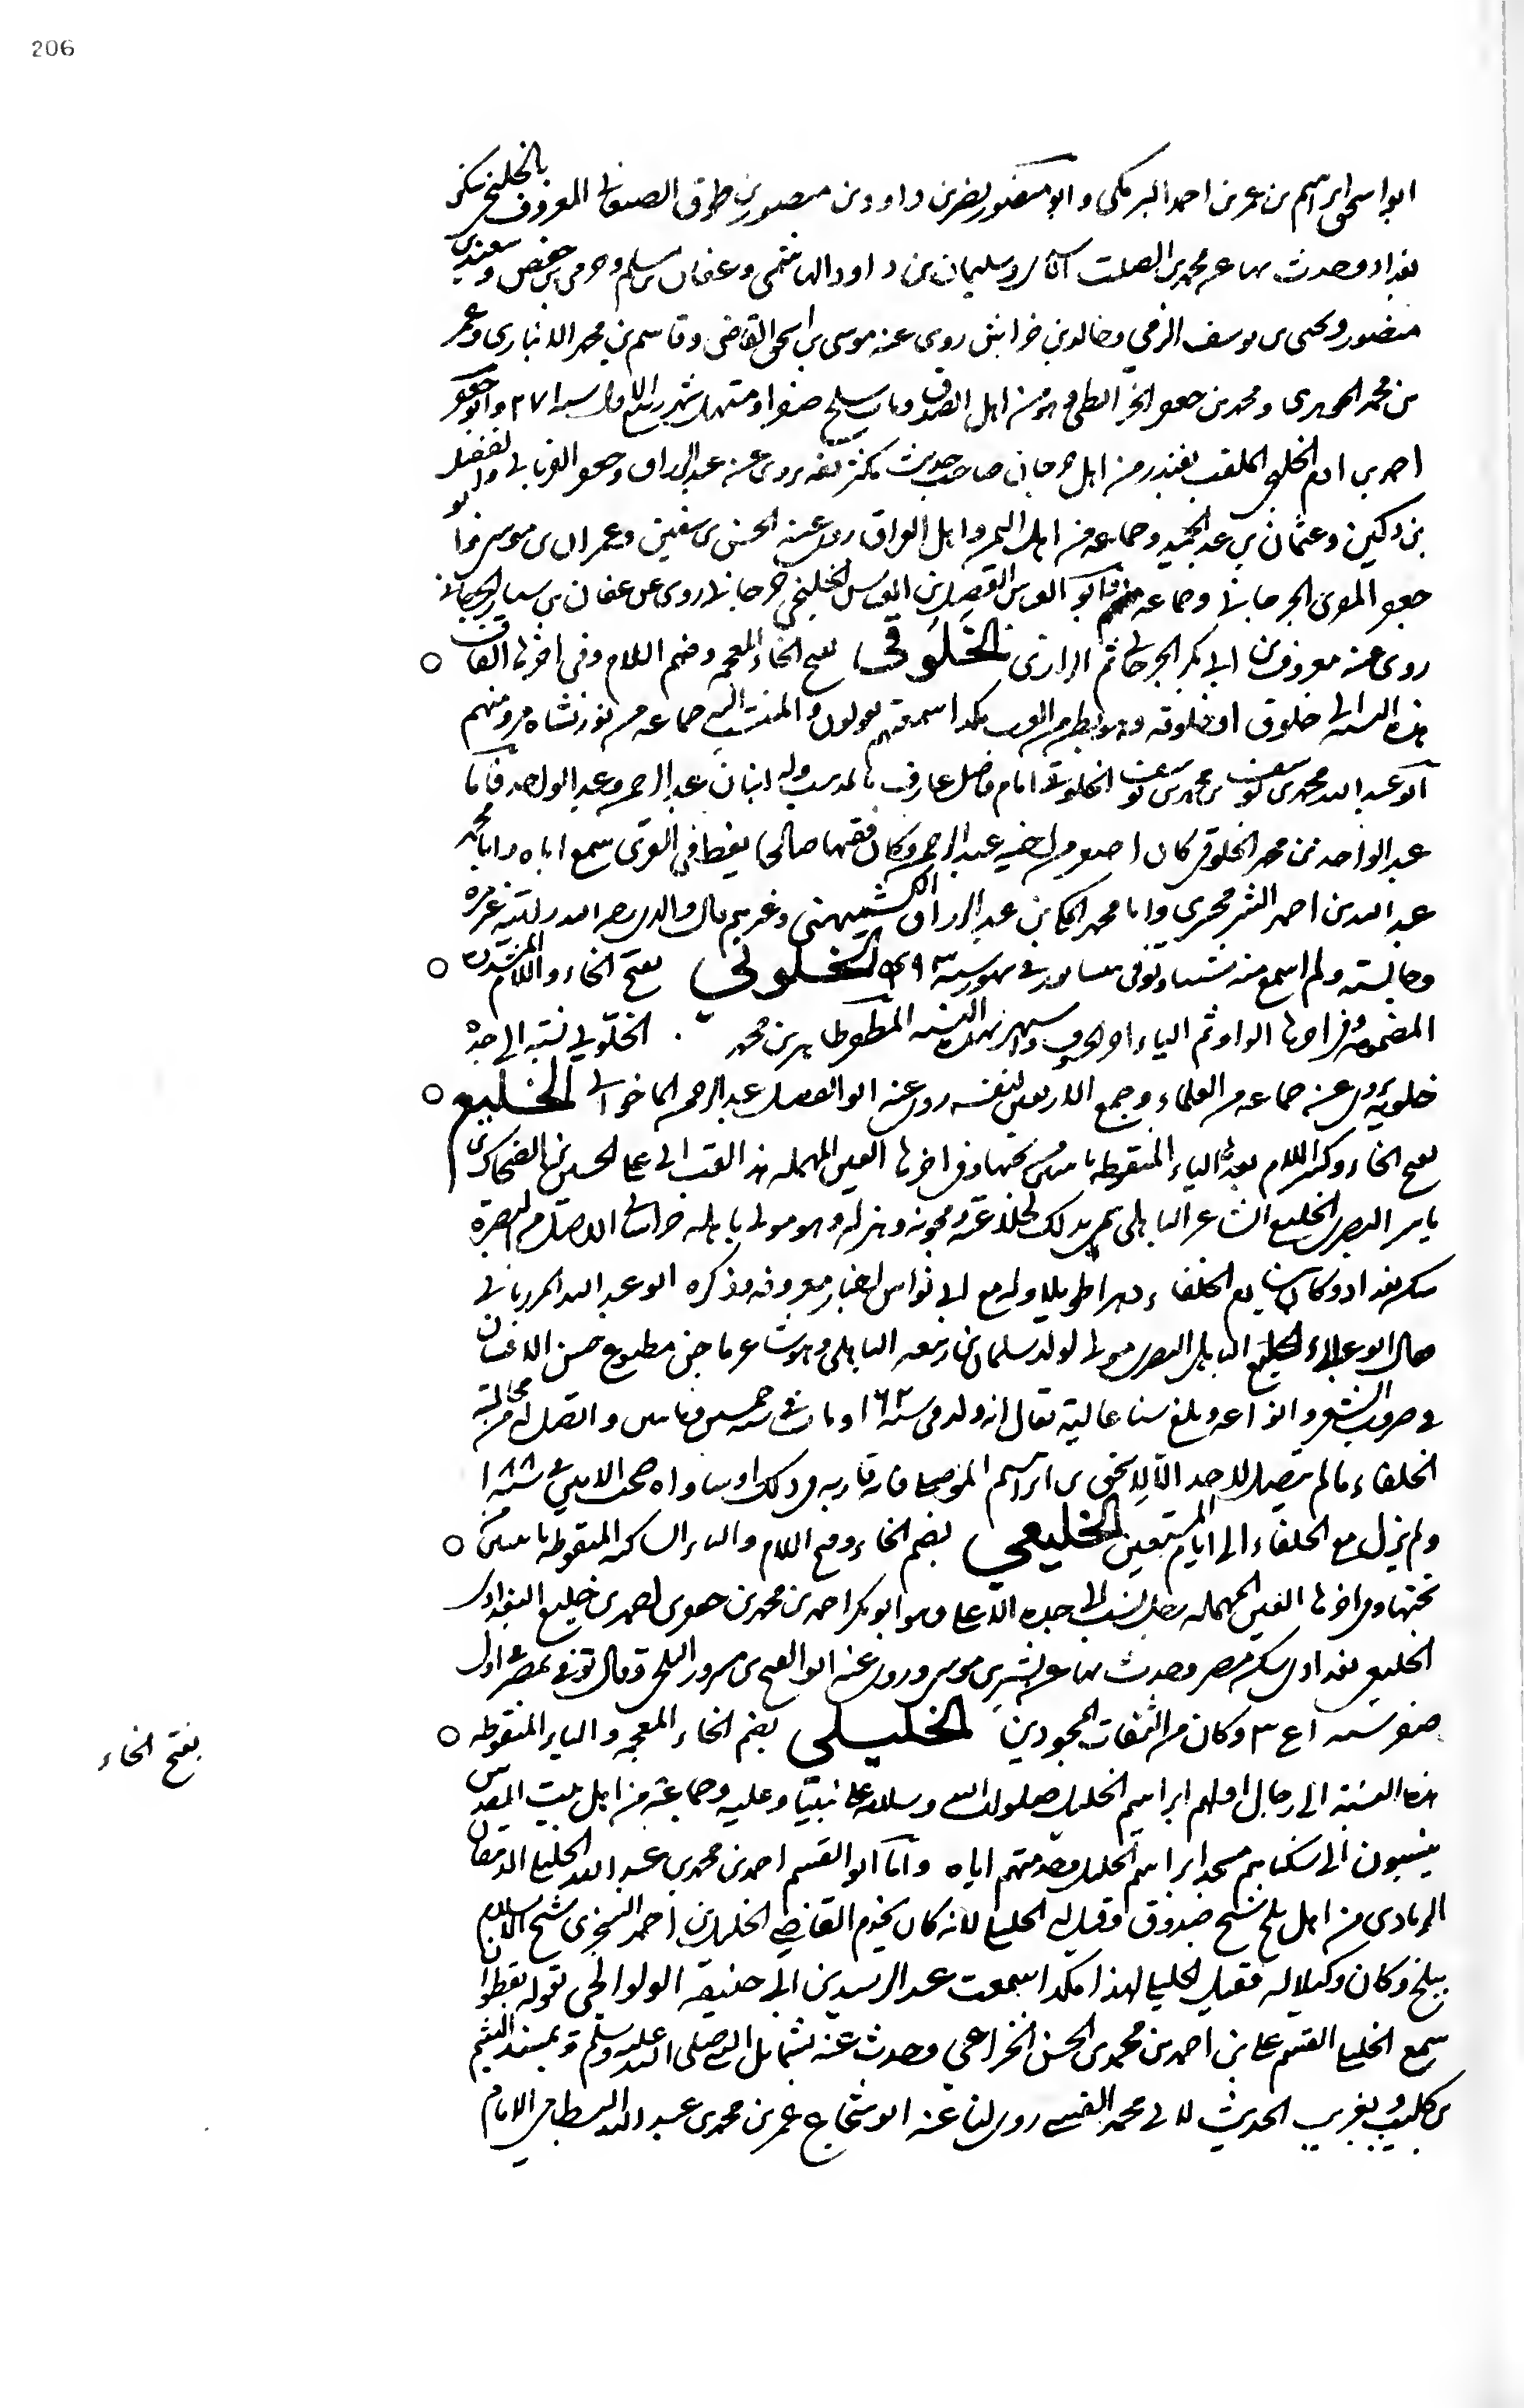 206
ابو اسحق ابراهيم بن عمر بن احمد البرمكي وابو منصور نصر بن داود بن منصور بن طوق الصغاني المعروف بالخلنجي سكن
بغداد وحدث بها عن محمد بن الصلت وسليمان بن داود الهاشمي وعفان بن مسلم وحرمي بن حفص وسعيد بن
منصور ويحيى بن يوسف الزمي وخالد بن خداش روى عنه موسى بن اسحق القاضي وقاسم بن محمد الانباري وعمر
بن محمد الجوهري ومحمد بن جعفر الخرائطي وهو من اهل الصدق ومات سلخ صفر او مستهل شهر ربيع الاول سنة ٢٧١ وابو جعفر
احمد بن ادم الخلنجي الملقب بغندر من اهل جرجان صاحب حديث مكثر ثقه يروي عن عبد الرزاق وجعفر الفريابي والفضل
بن دكين وعثمان بن عبد الحميد وجماعه من اهل اليمن واهل العراق روى عنه الحسن بن سفين وعمران بن موسى وابو
جعفر المقري الجرجاني وجماعه وابو العباس الفضل بن العباس الخلنجي جرجاني روى عن عفان بن سيار الجرجاني
روى عنه معروف بن ابي بكر الجرجاني ثم الرازي الخلوقي بفتح الخاء المعجمه وضم اللام وفي اخرها القاف
هذه النسبه الى خلوق او خلوقه وهو بطن من العرب هكذا سمعتهم يقولون والمنتسب اليه جماعه من نوزنشاه مرو منهم
ابو عبد الله محمد بن يوسف بن محمد بن يوسف الخلوقي امام فاضل عارف بالمذهب وله ابنان عبد الرحمن وعبد الواحد فاما
عبد الواحد بن محمد الخلوقي كان اصغر من اخيه عبد الرحمن وكان فقيها صالحا يعظ في القرى سمع اباه وابا محمد
عبد الله بن احمد الشرمحري وابا محمد بن عبد الرزاق الكشميهني وغيرهم قال والدي رحمه الله لقيته غير مره
وجالسته ولم اسمع منه شيئا وتوفي الخلوبي بفتح الخاء واللام المشدده
المضمومة وفي اخرها الواو ثم الياء اخر الحروف واشتهر بهذه النسبه المطهر طاهر بن محمد . الخلوبي نسبة الى جده
خلوبه يروي عنه جماعه من العلماء وجمع الاربعين لنفسه روى عنه ابو الفضل عبد الرحمن الماخواني الخليع
بفتح الخاء وكسر اللام بعدها الياء المنقوطه باثنتين تحتها وفي اخرها العين المهمله هذا لقب ابي علي الحسين بن الضحاك بن
ياسر البصري الخليع الشاعر الباهلي سمي بذلك لخلاعته ومجونه وهزله وهو مولى باهله خراساني الاصل من البصرة
سكن بغداد وكان ينادم الخلفاء دهرا طويلا وله مع ابي نواس اخبار معروفه وذكره ابو عبد الله المرزباني
فقال ابو علي الخليع الباهلي البصري مولى لولد سلمان بن ربيعه الباهلي وهو شاعر ماجن مطبوع حسن الافتنان
في ضروب الشعر وانواعه وبلغ سنا عالية يقال انه ولد في سنة ١٦٢ ومات في سنة خمسين ومائتين واتصل له من مجالسة
الخلفاء ما لم يتصل لاحد الا لاسحق بن ابراهيم الموصلي فانه قاربه في ذلك او ساواه صحب الامين في سنة ١٨٨
ولم يزل مع الخلفاء الى ايام المستعين الخليعي بضم الخاء وفتح اللام والياء الساكنه المنقوطه باثنتين
تحتها وفي اخرها العين المهمله رجل نسب الى جده الاعلى وهو ابو بكر احمد بن محمد بن حموى احمد بن خليع البغدادي
الخليعي بغدادي سكن مصر وحدث بها عن بشر بن موسى وروى عنه ابو الفتح بن مسرور البلخي وقال توفي بمصر في اول
صفر سنة ٣٤١ وكان من الثقات المجودين الخليلي بضم الخاء المعجمه والياء المنقوطه
هذه النسبة الى رجال اولهم ابراهيم الخليل صلوات الله وسلامه على نبينا وعليه وجماعة من اهل بيت المقدس
ينسبون الى سكناهم مسجد ابراهيم الخليل وخدمتهم اياه واما ابو القسم احمد بن محمد بن عبد الله الخليلي الدهقان
الزيادي من اهل بلخ شيخ صدوق وقيل له الخليلي لانه كان يخدم القاضي الخليل بن احمد السجزي شيخ الاسلام
ببلخ وكان وكيلا له فقيل له الخليلي لهذا هكذا سمعت عبد الرشيد بن ابي حنيفه الولوالجي يقوله بقطوان
سمع الخليلي ابا القسم علي بن احمد بن محمد بن الحسن الخزاعي وحدث عنه بشمائل النبي صلى الله عليه وسلم وبمسند الهيثم
بن كليب وبغريب الحديث لابي محمد القتيبي روى لنا عنه ابو شجاع عمر بن محمد بن عبد الله البسطامي الامام
بفتح الخاء